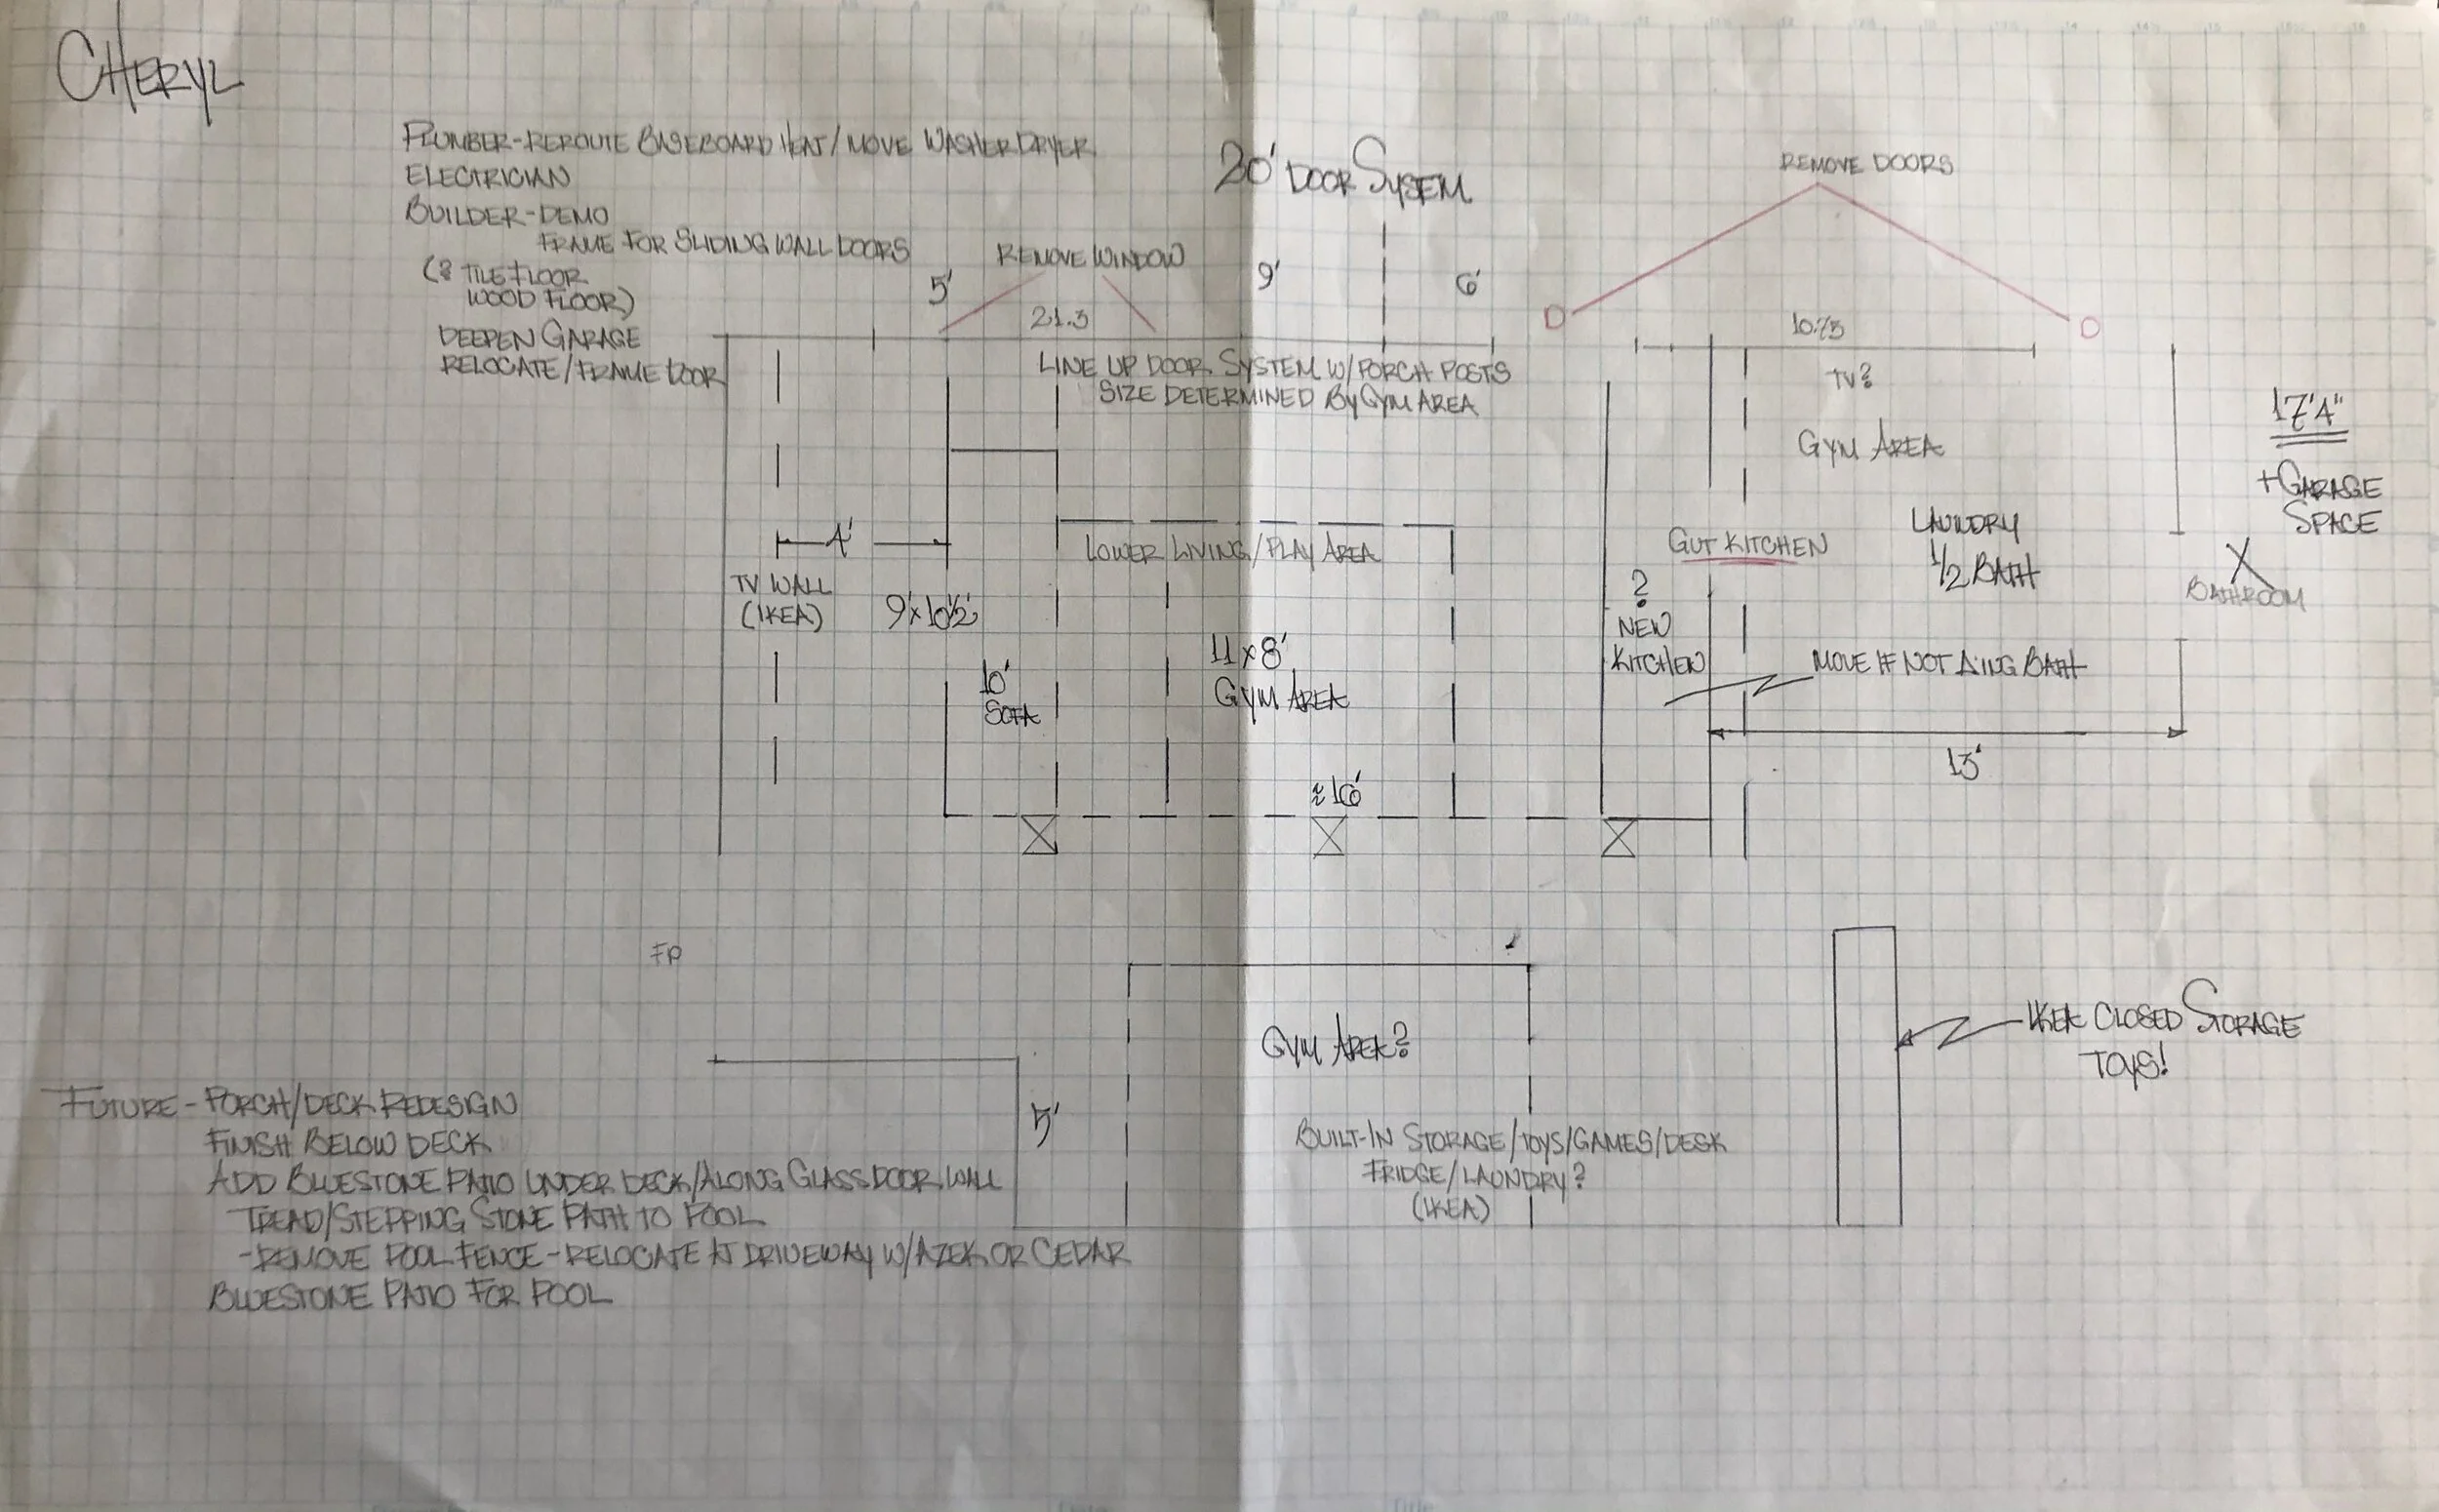 CHERYL
PLUMBER-REROUTE BASEBOARD HEAT/MOVE WASHER DRYER
ELECTRICIAN
BUILDER-DEMO
FRAME FOR SLIDING WALL DOORS
(? TILE FLOOR
WOOD FLOOR)
DEEPEN GARAGE
RELOCATE/FRAME DOOR
20' DOOR SYSEM
REMOVE DOORS
REMOVE WINDOW
5'
9'
6'
21.3
D
D
10.75
LINE UP DOOR SYSTEM W/PORCH POSTS
SIZE DETERMINED BY GYM AREA
TV?
GYM AREA
17'4"
+GARAGE
SPACE
4'
LOWER LIVING/PLAY AREA
GUT KITCHEN
LAUNDRY
1/2 BATH
X
BATHROOM
TV WALL
(IKEA)
9'x10½'
?
NEW
KITCHEN
11x8'
GYM AREA
10'
SOFA
MOVE IF NOT Δ'ING BATH
13'
≈16'
FP
GYM AREA?
IKEA CLOSED STORAGE
TOYS!
5'
BUILT-IN STORAGE/TOYS/GAMES/DESK
FRIDGE/LAUNDRY?
(IKEA)
FUTURE-PORCH/DECK REDESIGN
FINISH BELOW DECK
ADD BLUESTONE PATIO UNDER DECK/ALONG GLASS DOOR WALL
TREAD/STEPPING STONE PATH TO POOL
-REMOVE POOL FENCE-RELOCATE AT DRIVEWAY W/AZEK OR CEDAR
BLUESTONE PATIO FOR POOL
Title